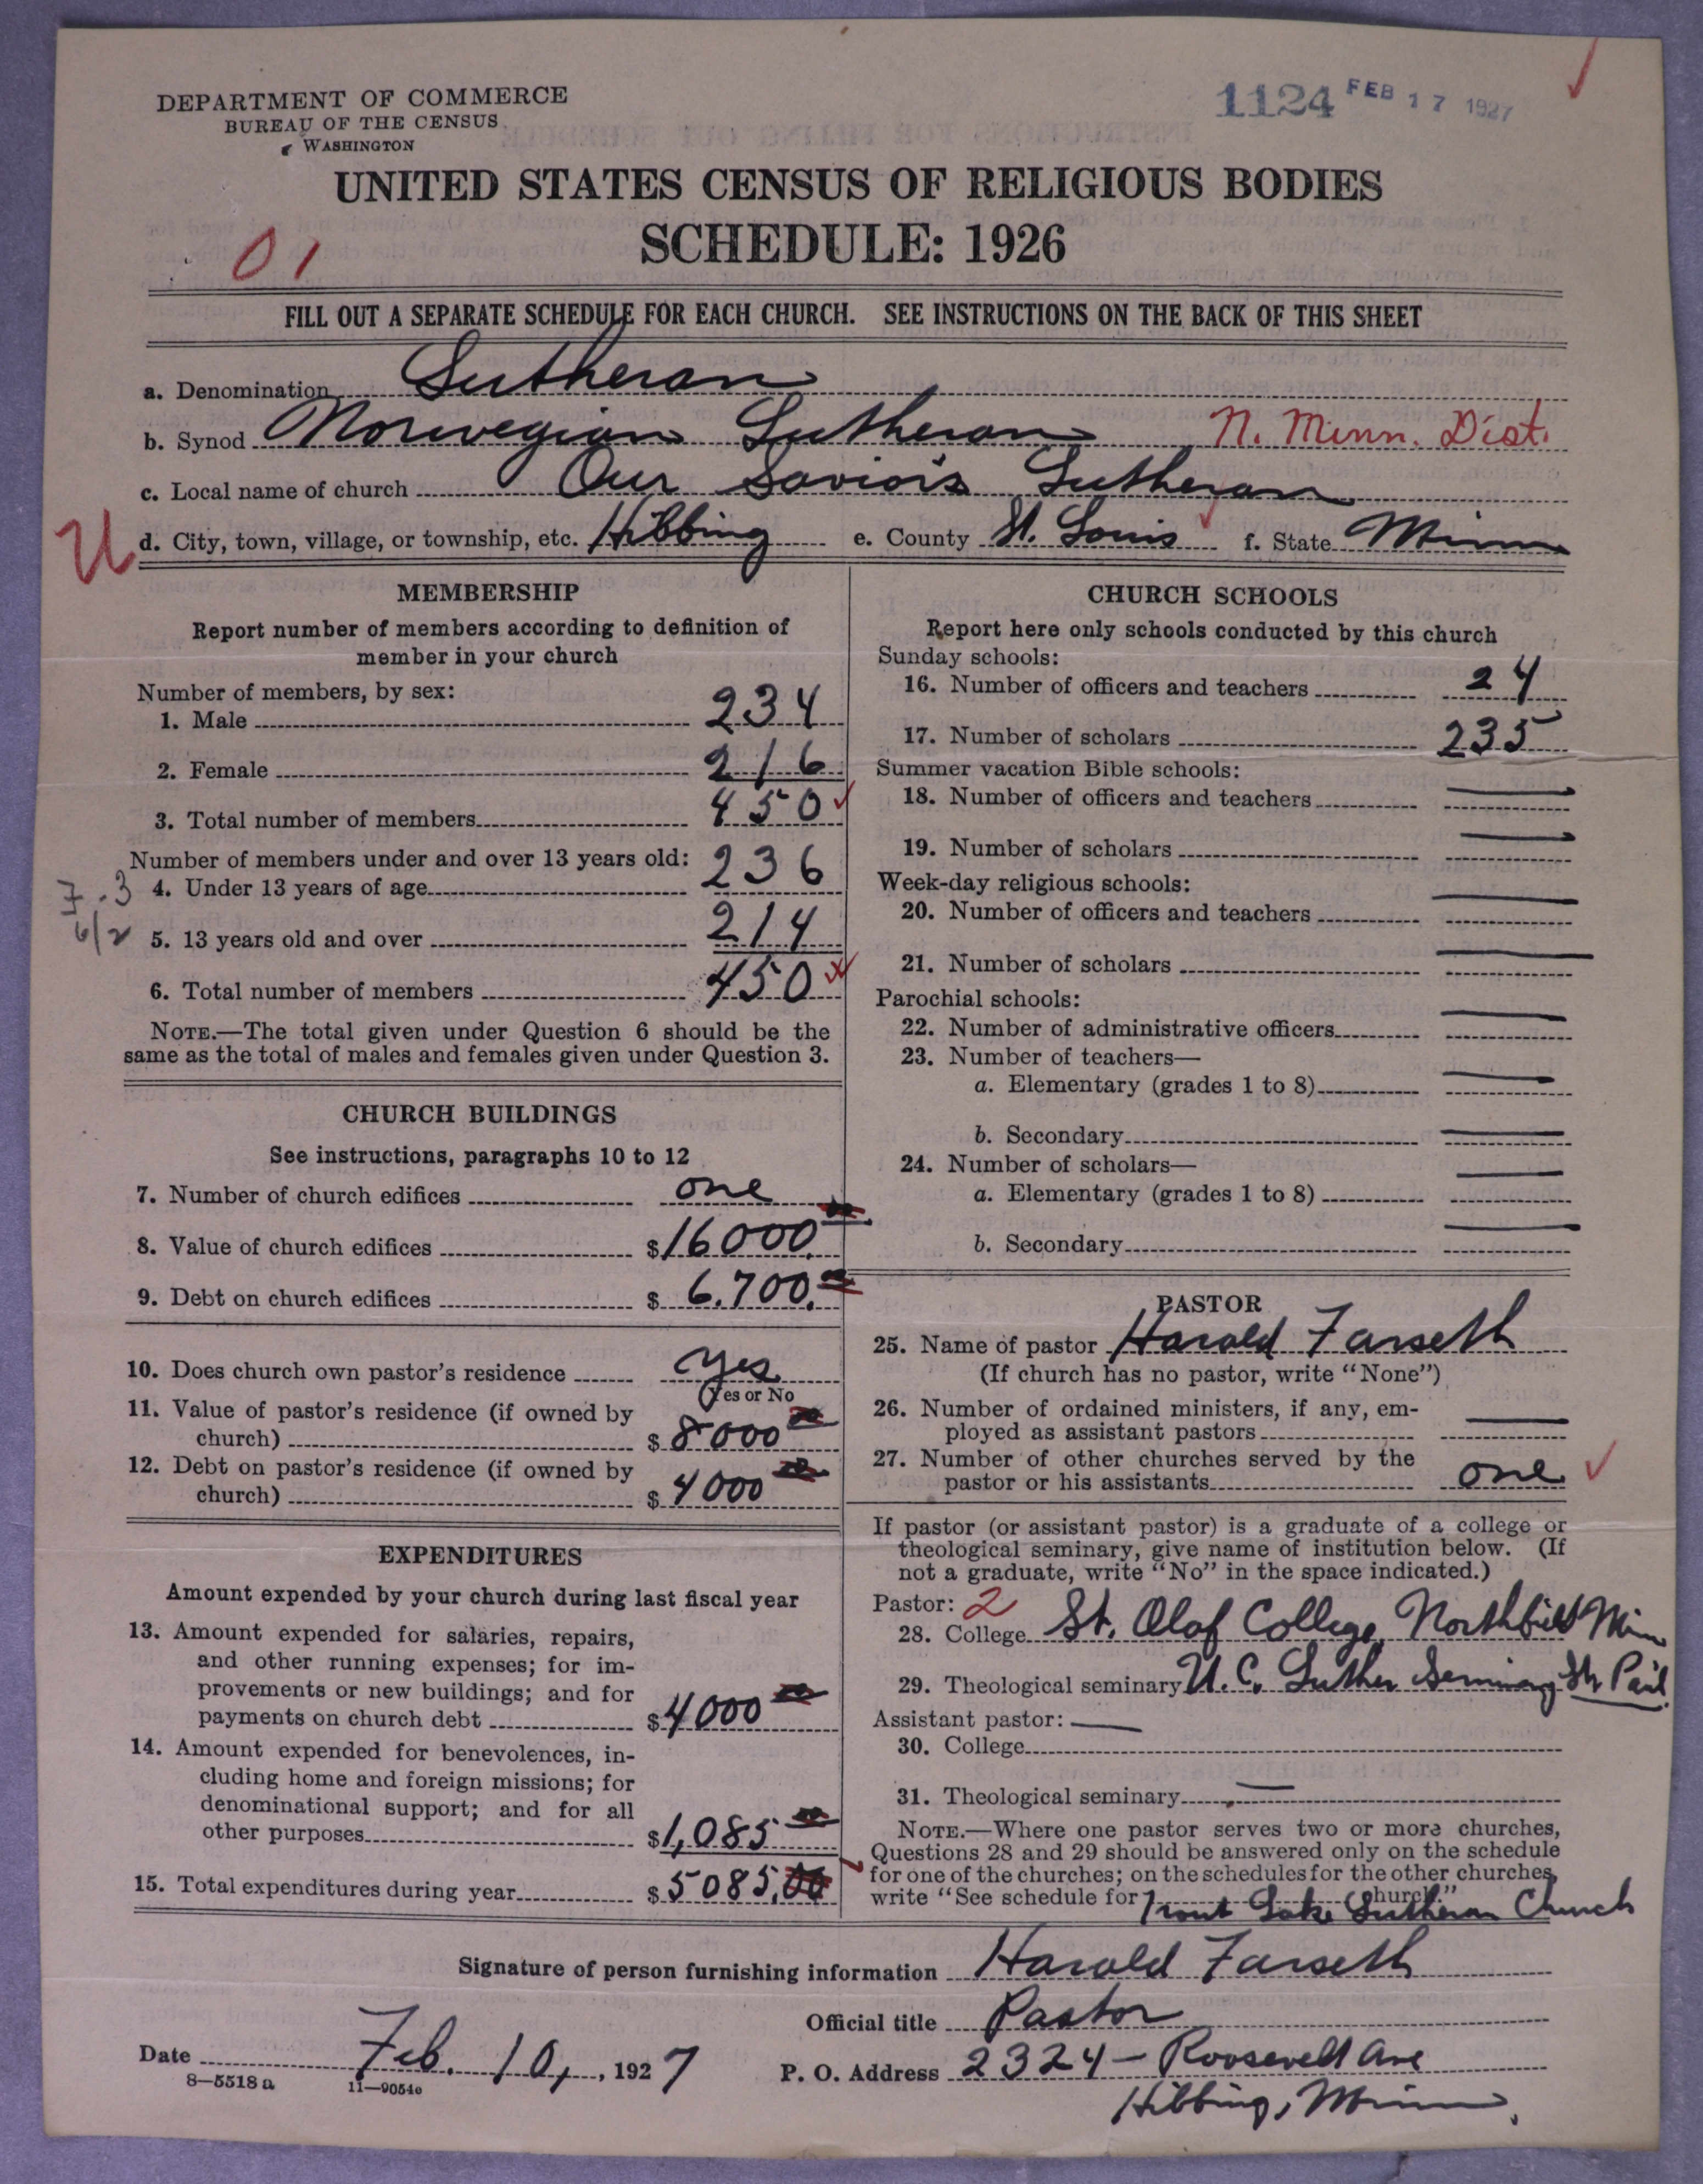 DEPARTMENT OF COMMERCE
BUREAU OF THE CENSUS
WASHINGTON
1124 FEB 17 1927
UNITED STATES CENSUS OF RELIGIOUS BODIES
SCHEDULE: 1926
01
FILL OUT A SEPARATE SCHEDULE FOR EACH CHURCH. SEE INSTRUCTIONS ON THE BACK OF THIS SHEET
a. Denomination Lutheran
b. Synod Norwegian Lutheran N. Minn. Dist.
c. Local name of church Our Savior's Lutheran
U d. City, town, village, or township, etc. Hibbing e. County St. Louis f. State Minn
MEMBERSHIP
Report number of members according to definition of
member in your church
Number of members, by sex:
1. Male 234
2. Female 216
3. Total number of members 450
Number of members under and over 13 years old:
4. Under 13 years of age 236
5. 13 years old and over 214
6. Total number of members 450
NOTE.—The total given under Question 6 should be the
same as the total of males and females given under Question 3.
CHURCH BUILDINGS
See instructions, paragraphs 10 to 12
7. Number of church edifices one
8. Value of church edifices $16000
9. Debt on church edifices $6.700.
10. Does church own pastor's residence yes
(Yes or No
11. Value of pastor's residence (if owned by
church) $8000
12. Debt on pastor's residence (if owned by
church) $4000
EXPENDITURES
Amount expended by your church during last fiscal year
13. Amount expended for salaries, repairs,
and other running expenses; for im-
provements or new buildings; and for
payments on church debt $4000
14. Amount expended for benevolences, in-
cluding home and foreign missions; for
denominational support; and for all
other purposes $1,085
15. Total expenditures during year $5085.00
CHURCH SCHOOLS
Report here only schools conducted by this church
Sunday schools:
16. Number of officers and teachers 24
17. Number of scholars 235
Summer vacation Bible schools:
18. Number of officers and teachers —
19. Number of scholars —
Week-day religious schools:
20. Number of officers and teachers —
21. Number of scholars —
Parochial schools:
22. Number of administrative officers —
23. Number of teachers—
a. Elementary (grades 1 to 8) —
b. Secondary —
24. Number of scholars—
a. Elementary (grades 1 to 8) —
b. Secondary —
PASTOR
25. Name of pastor Harold Farseth
(If church has no pastor, write "None")
26. Number of ordained ministers, if any, em-
ployed as assistant pastors —
27. Number of other churches served by the
pastor or his assistants one
If pastor (or assistant pastor) is a graduate of a college or
theological seminary, give name of institution below. (If
not a graduate, write "No" in the space indicated.)
Pastor: 2
28. College St. Olaf College, Northfield Minn
29. Theological seminary U. C. Luther Seminary St Paul
Assistant pastor: —
30. College
31. Theological seminary —
NOTE.—Where one pastor serves two or more churches,
Questions 28 and 29 should be answered only on the schedule
for one of the churches; on the schedules for the other churches,
write "See schedule for Trout Lake Lutheran Church church."
Signature of person furnishing information Harold Farseth
Official title Pastor
Date Feb. 10, 1927
P. O. Address 2324 — Roosevelt Ave
Hibbing, Minn.
8—5518a 11—9054e